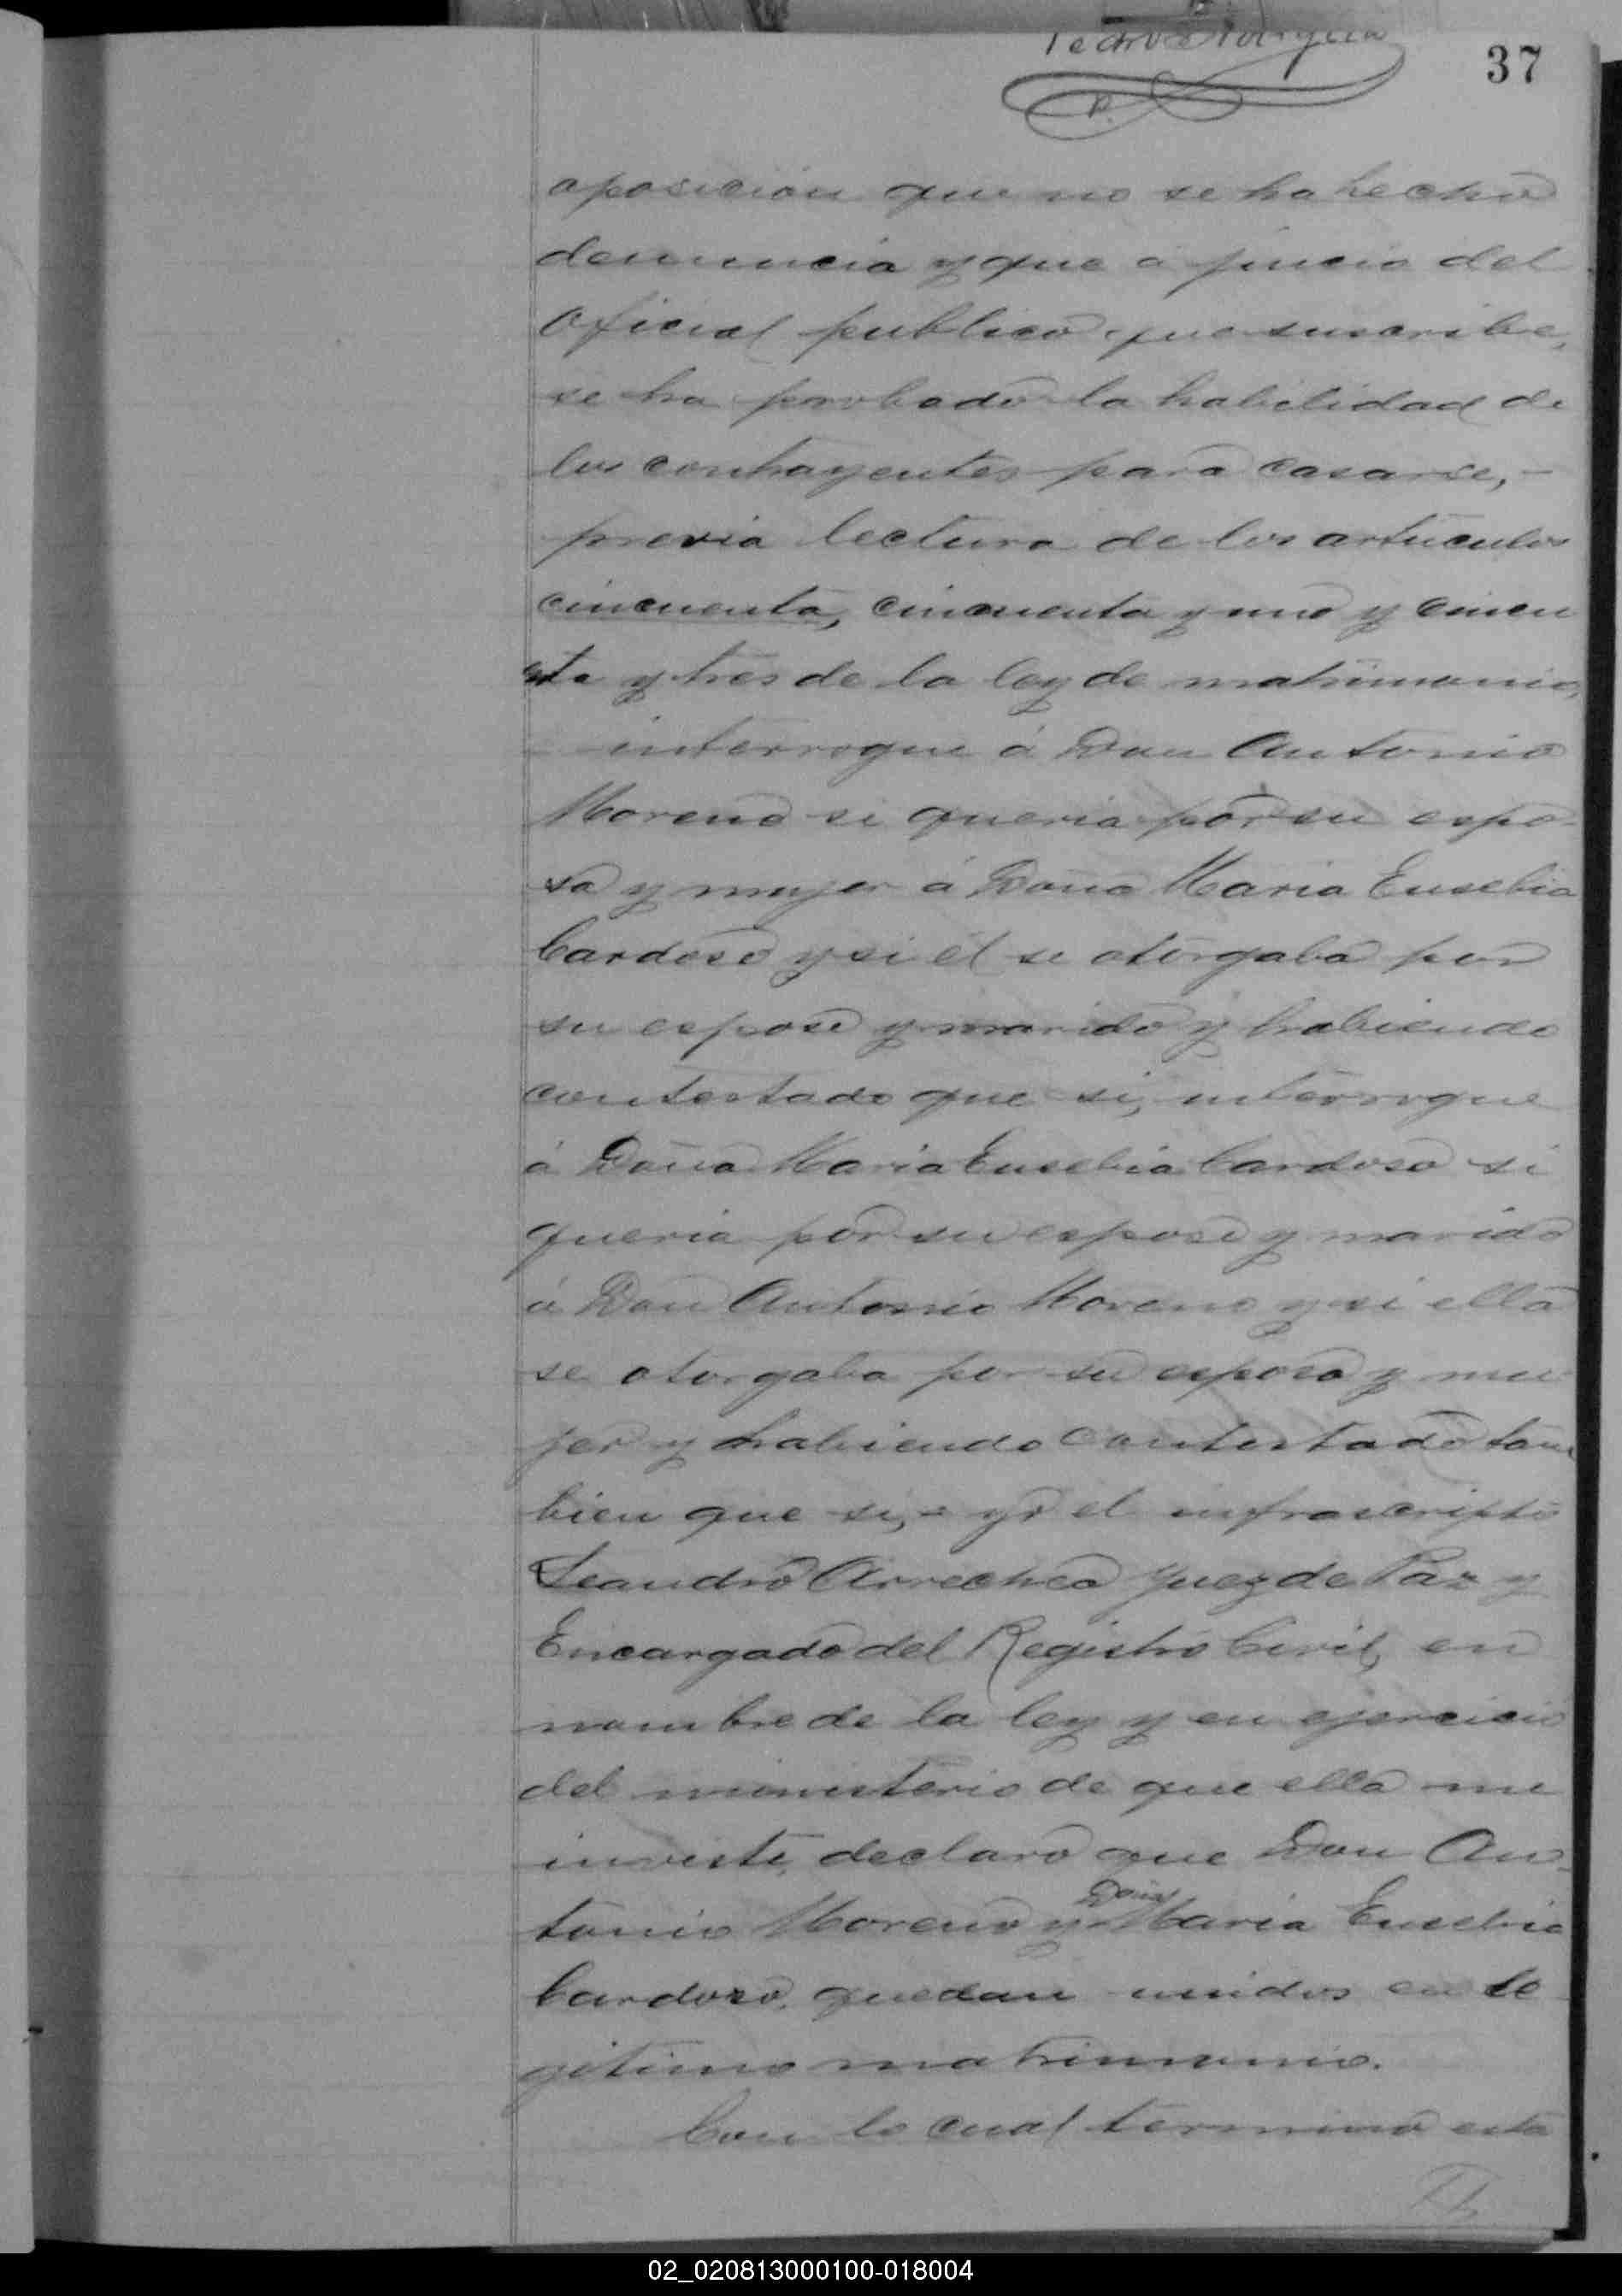 37
P.
oposicion que no se ha hecho
denuncia y que a juicio del
oficial publico que suscribe,
se ha probado la habilidad de
los contrayentes para casarse, -
previa lectura de los articulos
cincuenta, cincuenta y uno y cincu
enta y tres de la ley de matrimonio,
interrogue á Don Antonio
Moreno si queria por su espo-
sa y mujer á Doña Maria Eusebia
Cardoso y si él se otorgaba por
su esposo y marido y habiendo
contestado que si, interrogue
á Doña Maria Eusebia Cardoso si
queria por su esposo y marido
á Don Antonio Moreno y si ella
se otorgaba por su esposa y mu
jer y habiendo contestado tam
bien que si, - yo el infrascripto
Leandro Arrechea Juez de Paz y
Encargado del Registro Civil, en
nombre de la ley y en ejercicio
del ministerio de que ella me
inviste, declaro que Don An-
tonio Moreno y Doña Maria Eusebia
Cardoso, quedan unidos en le
gitimo matrimonio.
Con lo cual termino esta
02_020813000100-018004